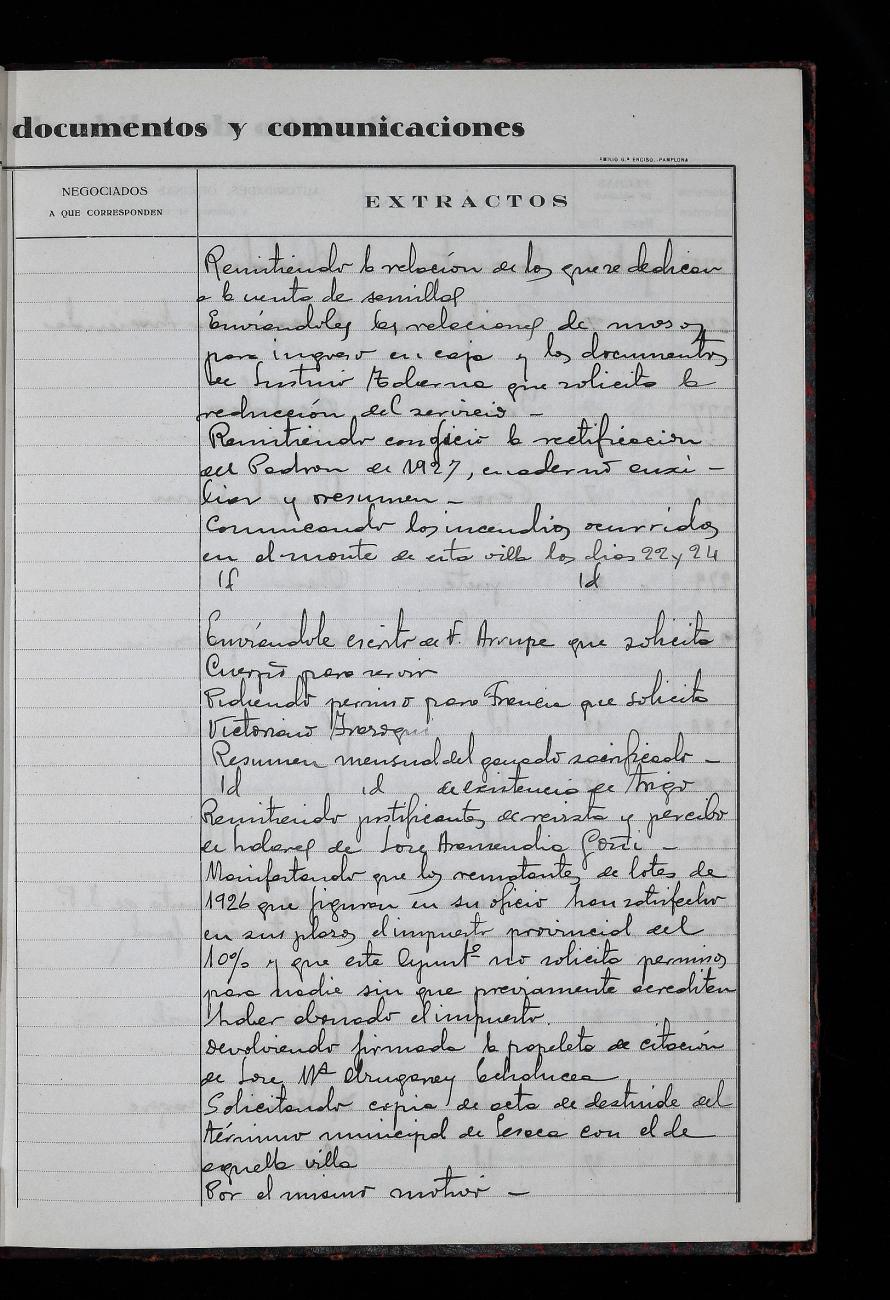 documentos y comunicaciones
EMILIO G.ª ENCISO.-PAMPLONA
NEGOCIADOS
A QUE CORRESPONDEN
EXTRACTOS
Remitiendo la relación de los que se dedican
a la venta de semillas
Enviándoles las relaciones de mozos
para ingreso en caja y los documentos
de Justino que solicita la
reducción del servicio -
Remitiendo con oficio la rectificacion
del Padron de 1927, cuaderno auxi-
liar y resumen -
Comunicando los incendios ocurridos
en el monte de esta villa los dias 22 y 24
Id Id
Enviándole escrito de F. Arrupe que solicita
Cuerpo para servir
Pidiendo permiso para Francia que solicita
Victoriano
Resumen mensual del ganado sacrificado -
Id id de existencia de trigo
Remitiendo justificantes de revista y percibo
de haberes de Jose Aramendia Goñi -
Manifestando que los rematantes de lotes de
1926 que figuran en su oficio han satisfecho
en sus plazos el impuesto provincial del
10% y que este Ayuntº no solicita permisos
para nadie sin que previamente acrediten
haber abonado el impuesto.
Devolviendo firmada la papeleta de citación
de Jose Mª
Solicitando copia de acta de deslinde del
término municipal de Lesaca con el de
aquella villa
Por el mismo motivo -